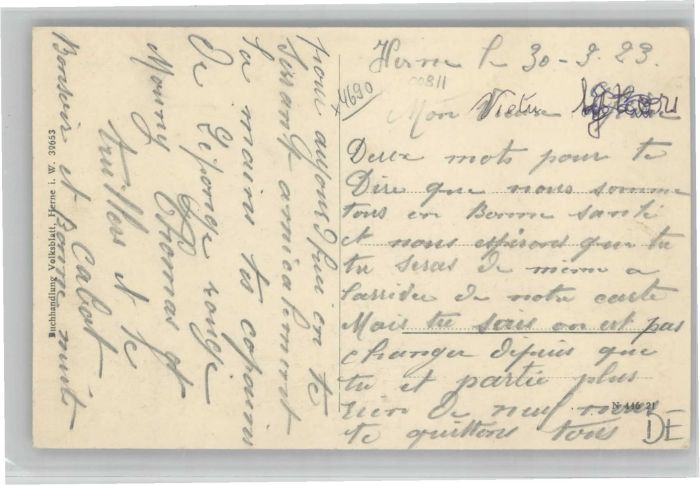 Herne le 30-3.23.
00811
4690
Mon Vieux
Deux mots pour te
Dire que nous somme
tous en Bonne santé
et nous espérons que tu
tu seras de même a
l'arrivée de notre carte
Mais tu sais on est pas
changer depuis que
tu et partie plus
rien de neuf nous
te quittons tous
pour aujourd'hui en te
serrant amicalement
la mains tes copains
De Leponge rouge
Mourny Thomas et
truillois et le
Cabot
Bonsoir et Bonne nuit
Buchhandlung Volksblatt, Herne i. W. 39653
N 446 21
DE